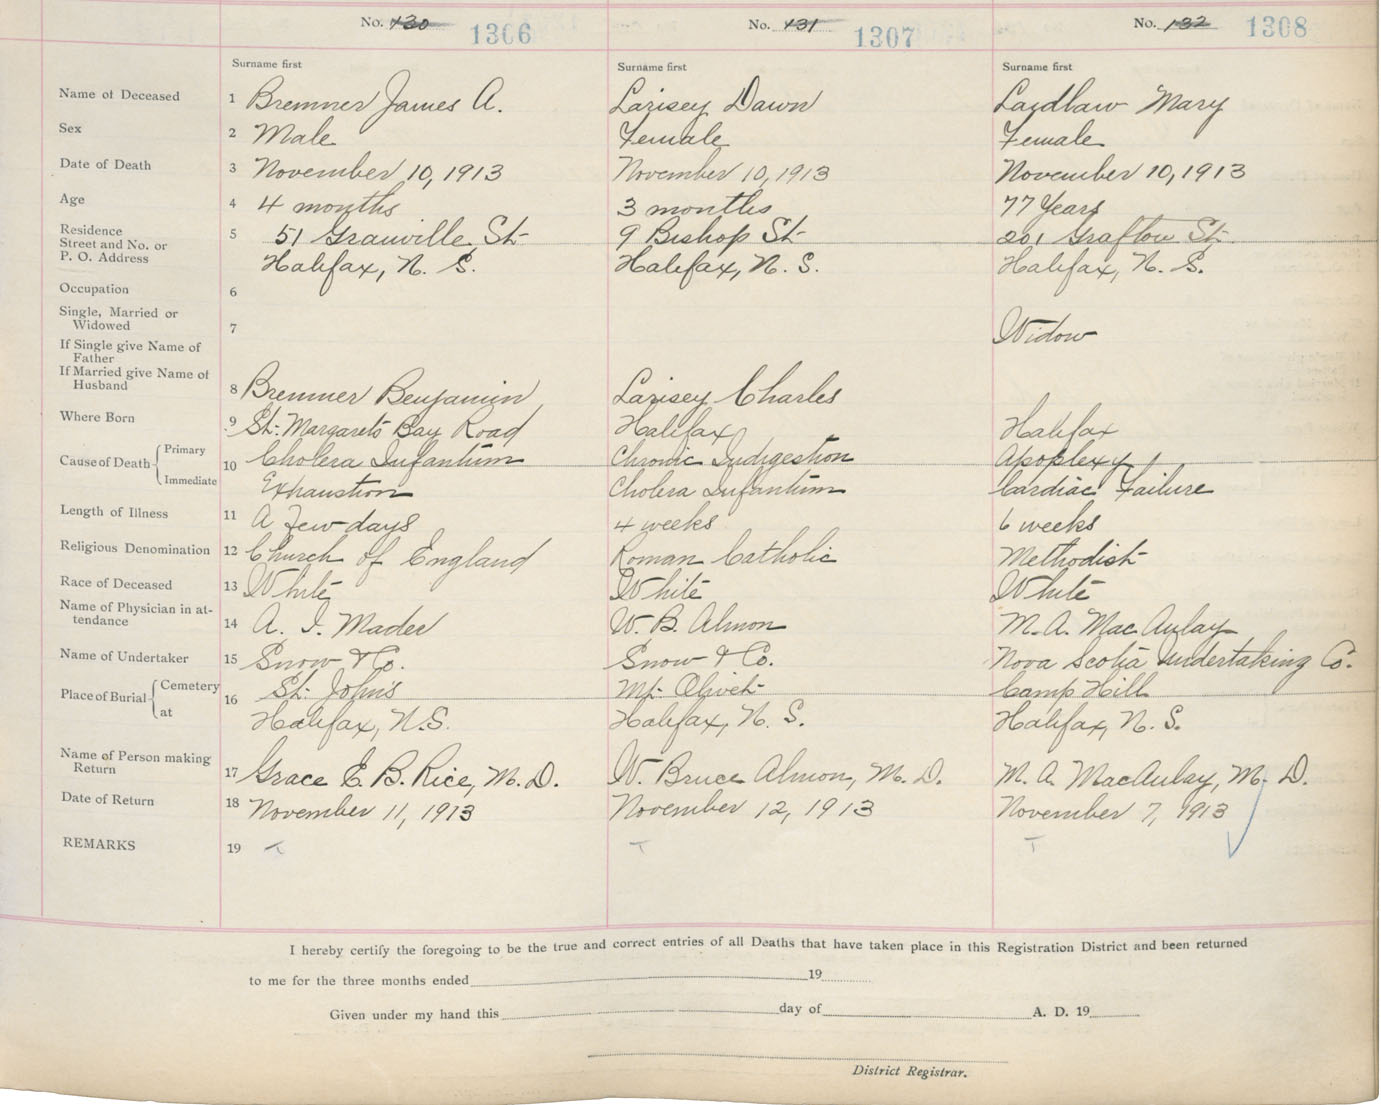 No. 130 1306 No. 131 1307 No. 132 1308
Surname first Surname first Surname first
Name of Deceased 1 Bremner James A. Larisey Dawn Laidlaw Mary
Sex 2 Male Female Female
Date of Death 3 November 10, 1913 November 10, 1913 November 10, 1913
Age 4 4 months 3 months 77 Years
Residence 5 51 Granville St. 9 Bishop St. 201 Grafton St.
Street and No. or
P. O. Address Halifax, N. S. Halifax, N. S. Halifax, N. S.
Occupation 6
Single, Married or
Widowed 7 Widow
If Single give Name of
Father
If Married give Name of
Husband 8 Bremner Benjamin Larisey Charles
Where Born 9 St. Margaret's Bay Road Halifax Halifax
Cause of Death Primary 10 Cholera Infantum Chronic Indigestion Apoplexy
Immediate Exhaustion Cholera Infantum Cardiac Failure
Length of Illness 11 A few days 4 weeks 6 weeks
Religious Denomination 12 Church of England Roman Catholic Methodist
Race of Deceased 13 White White White
Name of Physician in at-
tendance 14 A. I. Mader W. B. Almon M. A. MacAulay
Name of Undertaker 15 Snow & Co. Snow & Co. Nova Scotia Undertaking Co.
Place of Burial Cemetery 16 St. John's Mt. Olivet Camp Hill
at Halifax, N.S. Halifax, N. S. Halifax, N. S.
Name of Person making
Return 17 Grace E. B. Rice, M. D. W. Bruce Almon, M. D. M. A. MacAulay, M. D.
Date of Return 18 November 11, 1913 November 12, 1913 November 7, 1913
REMARKS 19 T T T
I hereby certify the foregoing to be the true and correct entries of all Deaths that have taken place in this Registration District and been returned
to me for the three months ended 19
Given under my hand this day of A. D. 19
District Registrar.